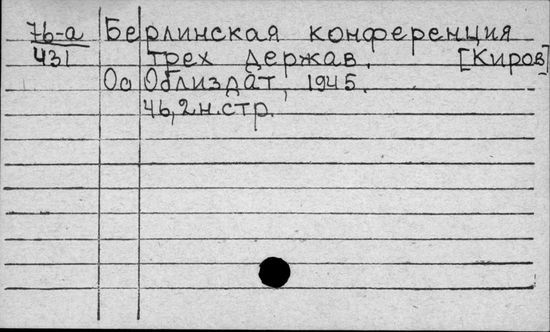 76-а Берлинская конференция
431 трех держав. [Киров]
Оо Облиздат, 1945.
46, 2 н. стр.